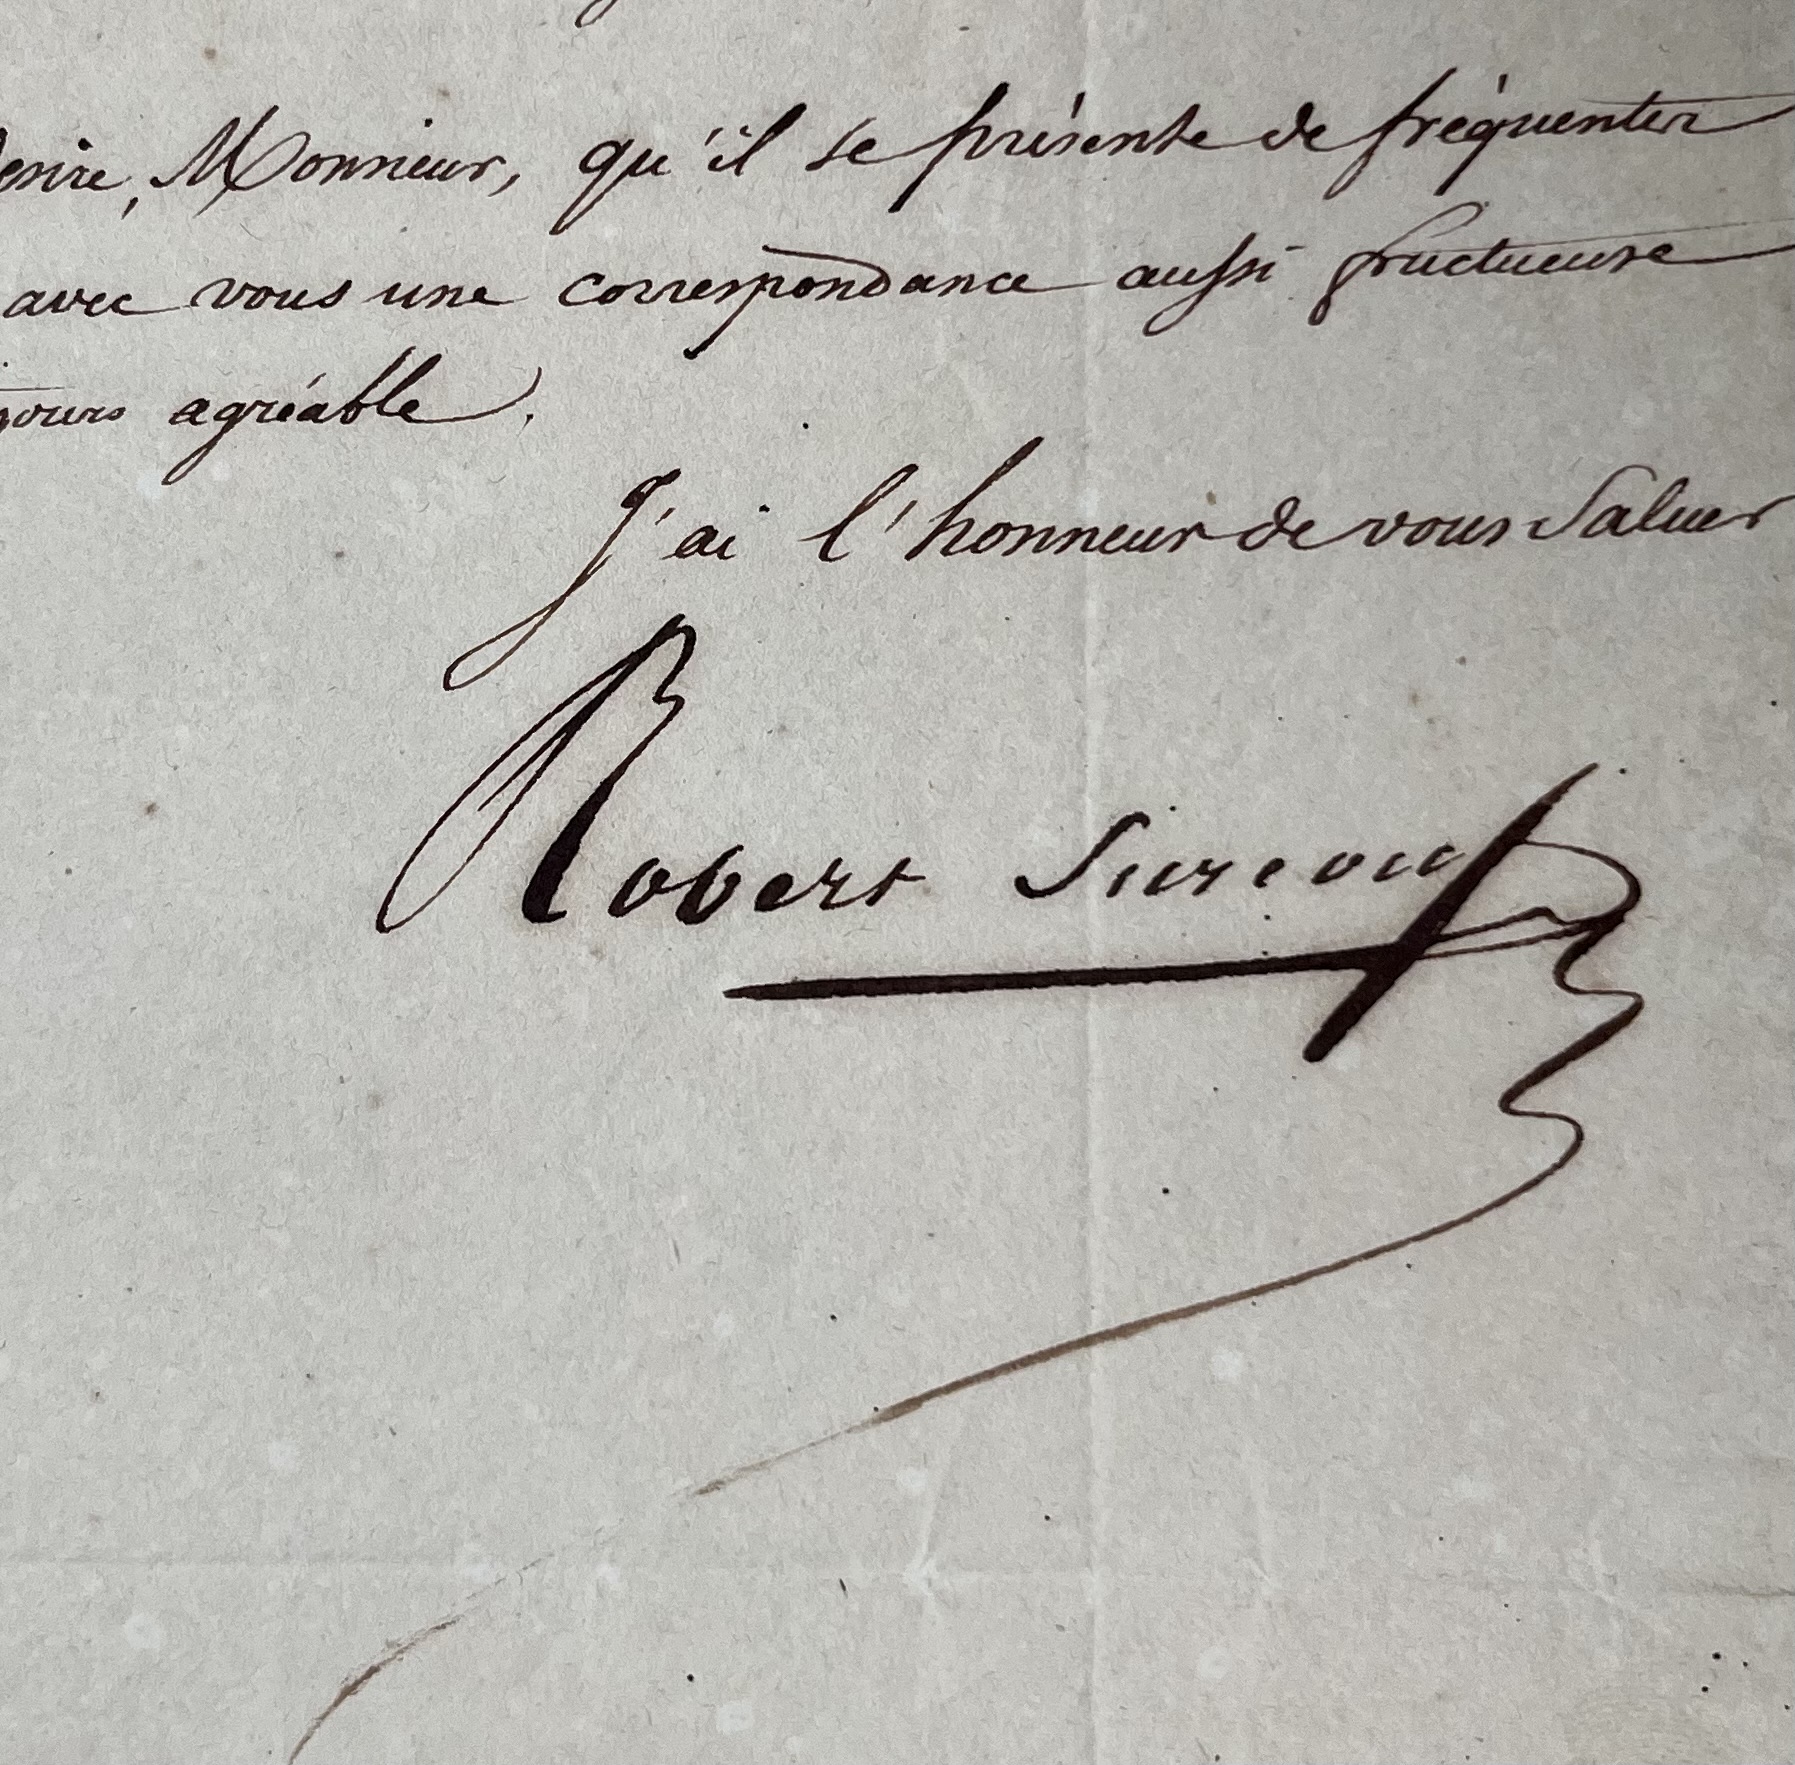 desire, Monsieur, qu'il se présente de fréquenter
avec vous une correspondance aussi fructueuse
agréable.
J'ai l'honneur de vous Saluer
Robert Surcouf